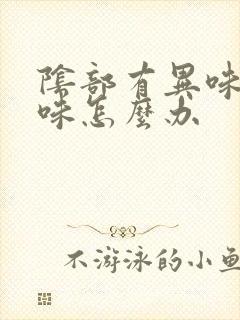 陰部有異味
味怎麼办
不游泳的小鱼